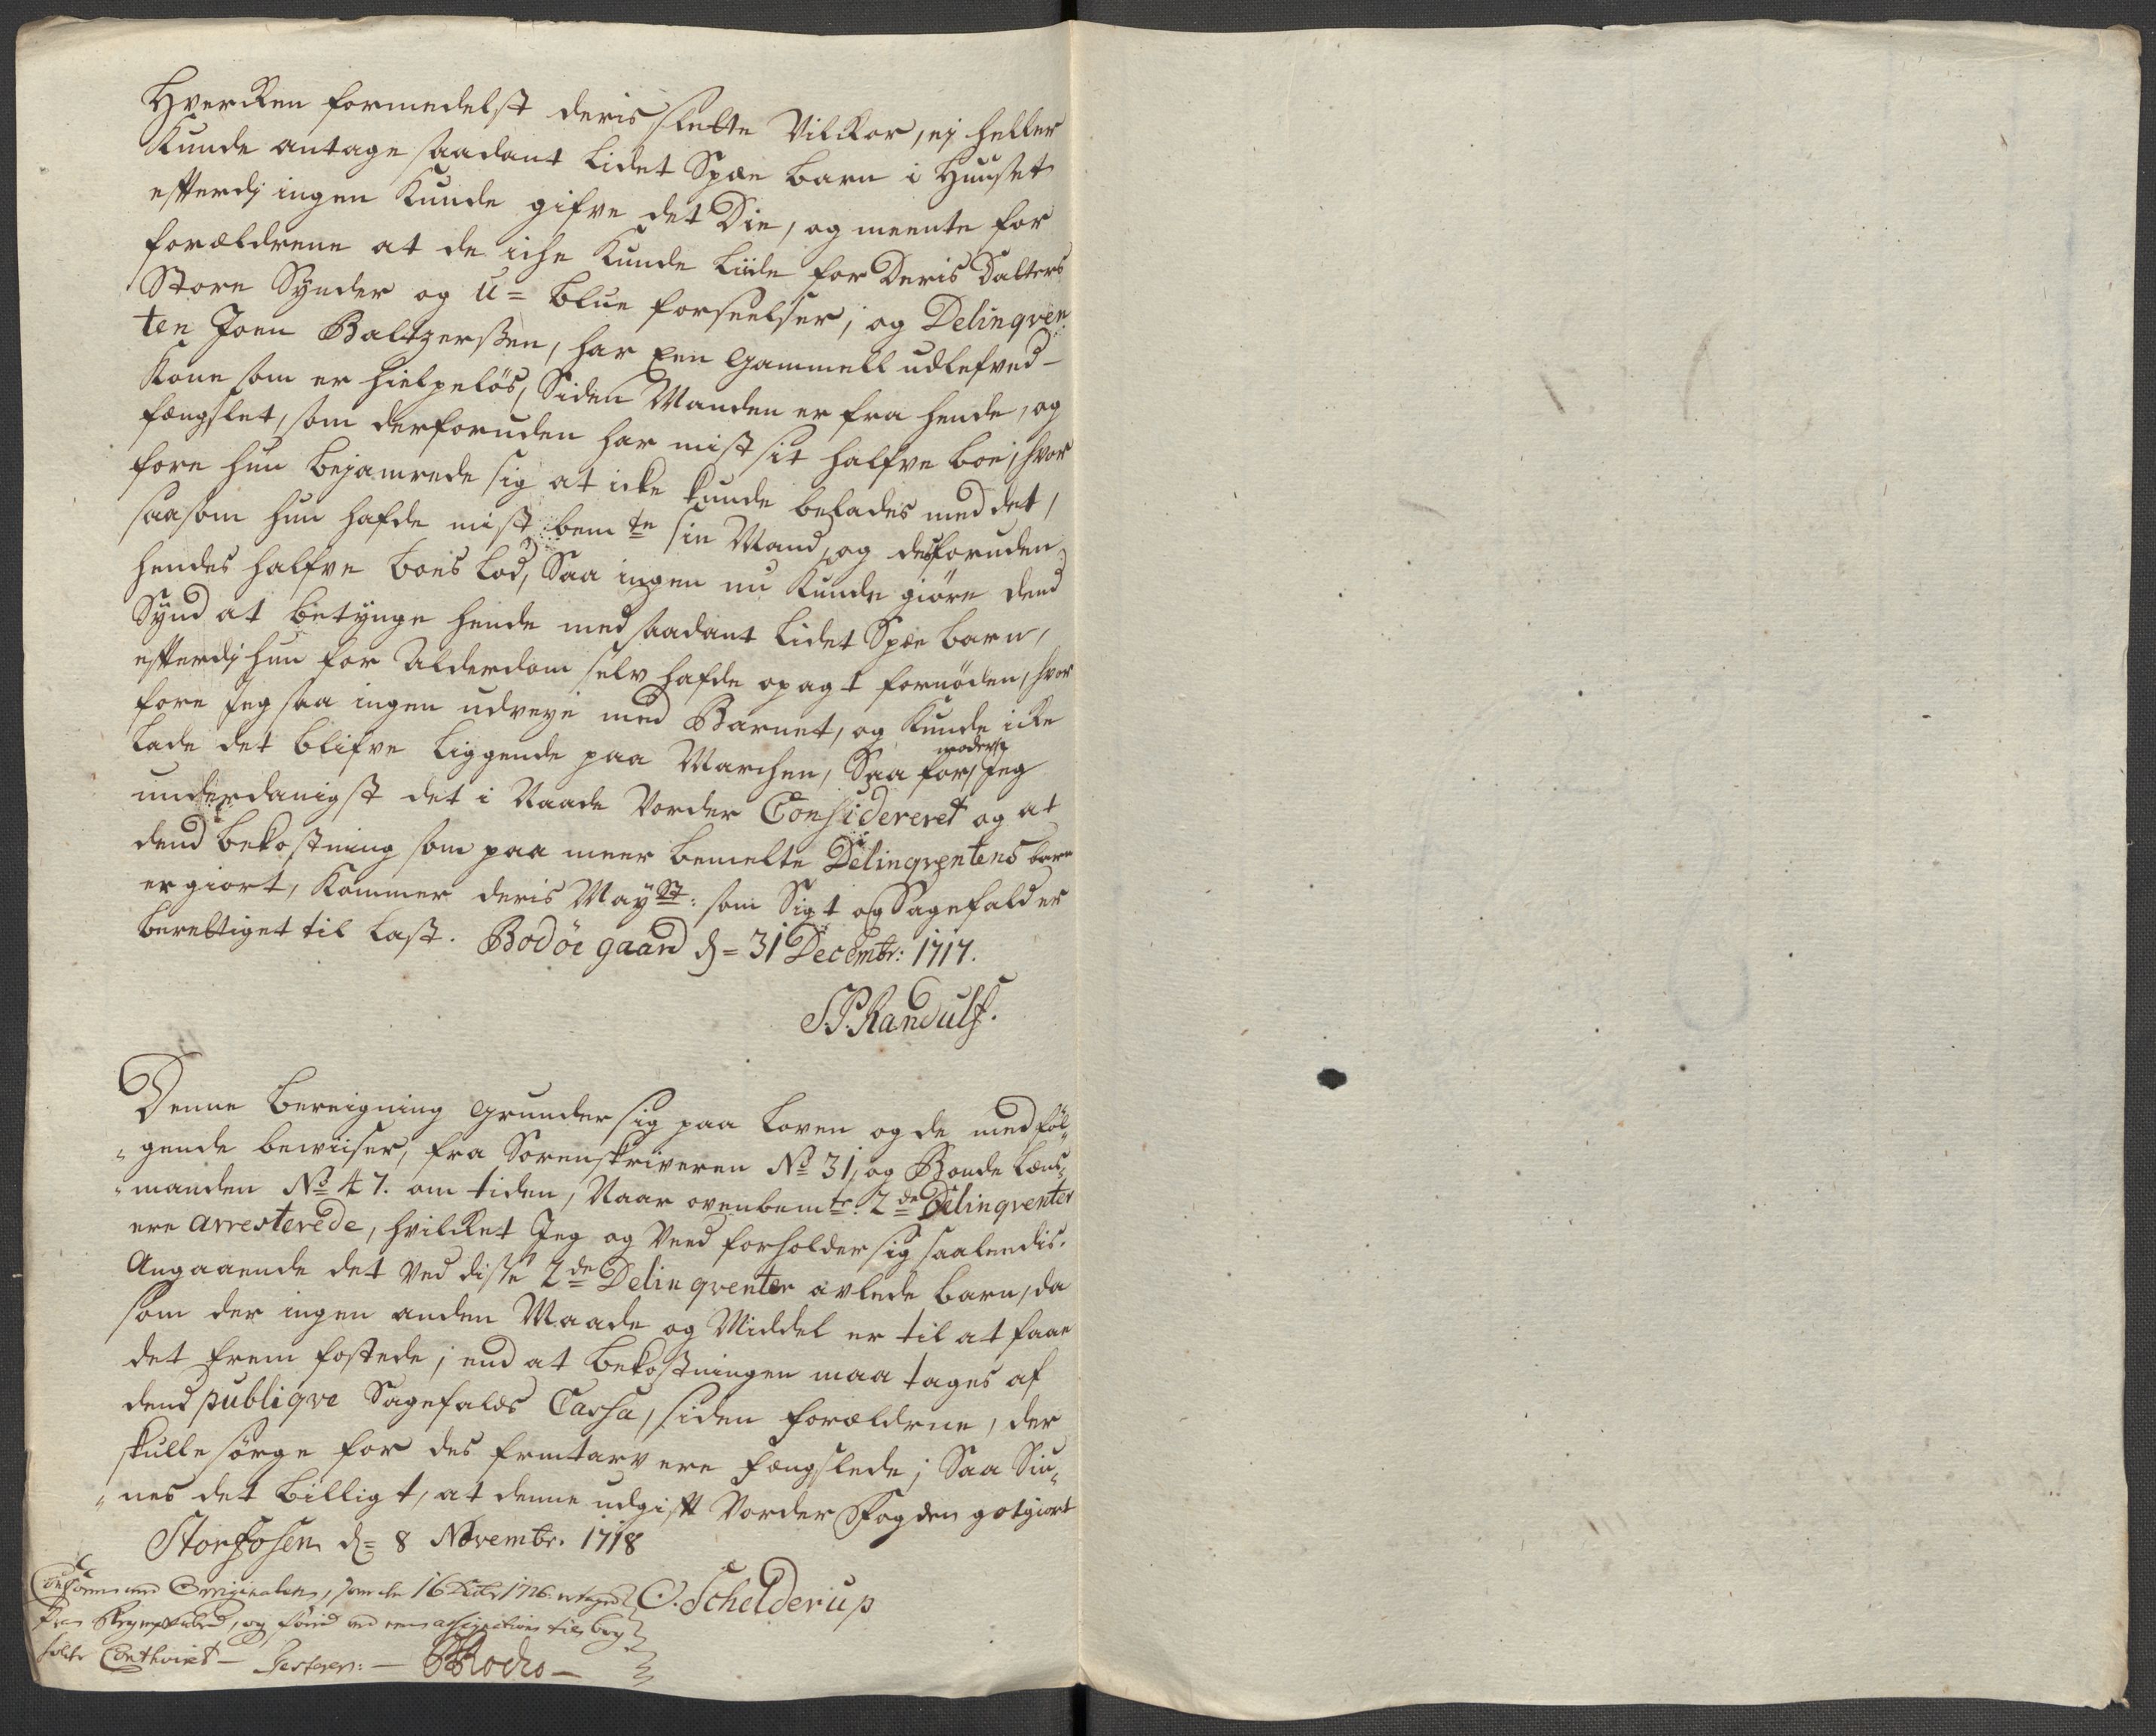 Hvercken formedelst deris slette Vilckor, ej heller
Kunde antage saadant lidet Spæe barn i Huuset
efterdj ingen Kunde gifve det Die, og meente for
forældrene at de iche Kunde liide for Deris Datters
Store Synder og U=blue forseelser; og Delinqven
ten Joen Baltzerssen, har Een Gammell udlefved
Kone som er hielpelös, Siden Manden er fra hende, og
fængslet, som derforuden har mist sit halfve boe; hvor
fore hun bejamrede sig at icke kunde belades med det,
saasom hun hafde mist bemte sin Mand, og desforuden
hendes halfve boes lod, Saa ingen nu Kunde giöre dend
Synd at betynge hende med saadant lidet Spæe barn,
efterdj hun for Alderdom selv hafde opagt fornöden, hvor
fore Jeg saa ingen udveye med Barnet, og Kunde icke
lade det blifve liggende paa Marchen, Saa formoder Jeg
underdanigst det i Naade Vorder Considereret og at
dend bekostning som paa meer bemelte Delinqventens barn
er giort, Kommer deris Mayst: som Sigt og Sagefald er
berettiget til last. Bodöe gaard d= 31 Decembr: 1717.
S.P. Randulf.
Denne bereigning grunder sig paa Loven og de medföl
gende bewiiser, fra Sorenskriveren No 31, og Bonde Læns
manden No 47. om tiden, Naar ovenbemte 2de Delinqventer
ere arresterede, hvilcket Jeg og Veed forholder sig saaleedis.
Angaaende det Ved disse 2de Delinqventer avlede barn, da
som der ingen anden Maade og Middel er til at faae
det frem fostede; end at bekostningen maa tages af
dend publiqve Sagefalds Cassa, siden forældrene, der
skulle sörge for des fremtarv ere fængslede; Saa Siu
nes det billigt, at denne udgift Vorder Fogden gotgiort
Storfosen d= 8 Novembr. 1718
O. Schelderup
Conform med Originalen, som den 16 1726